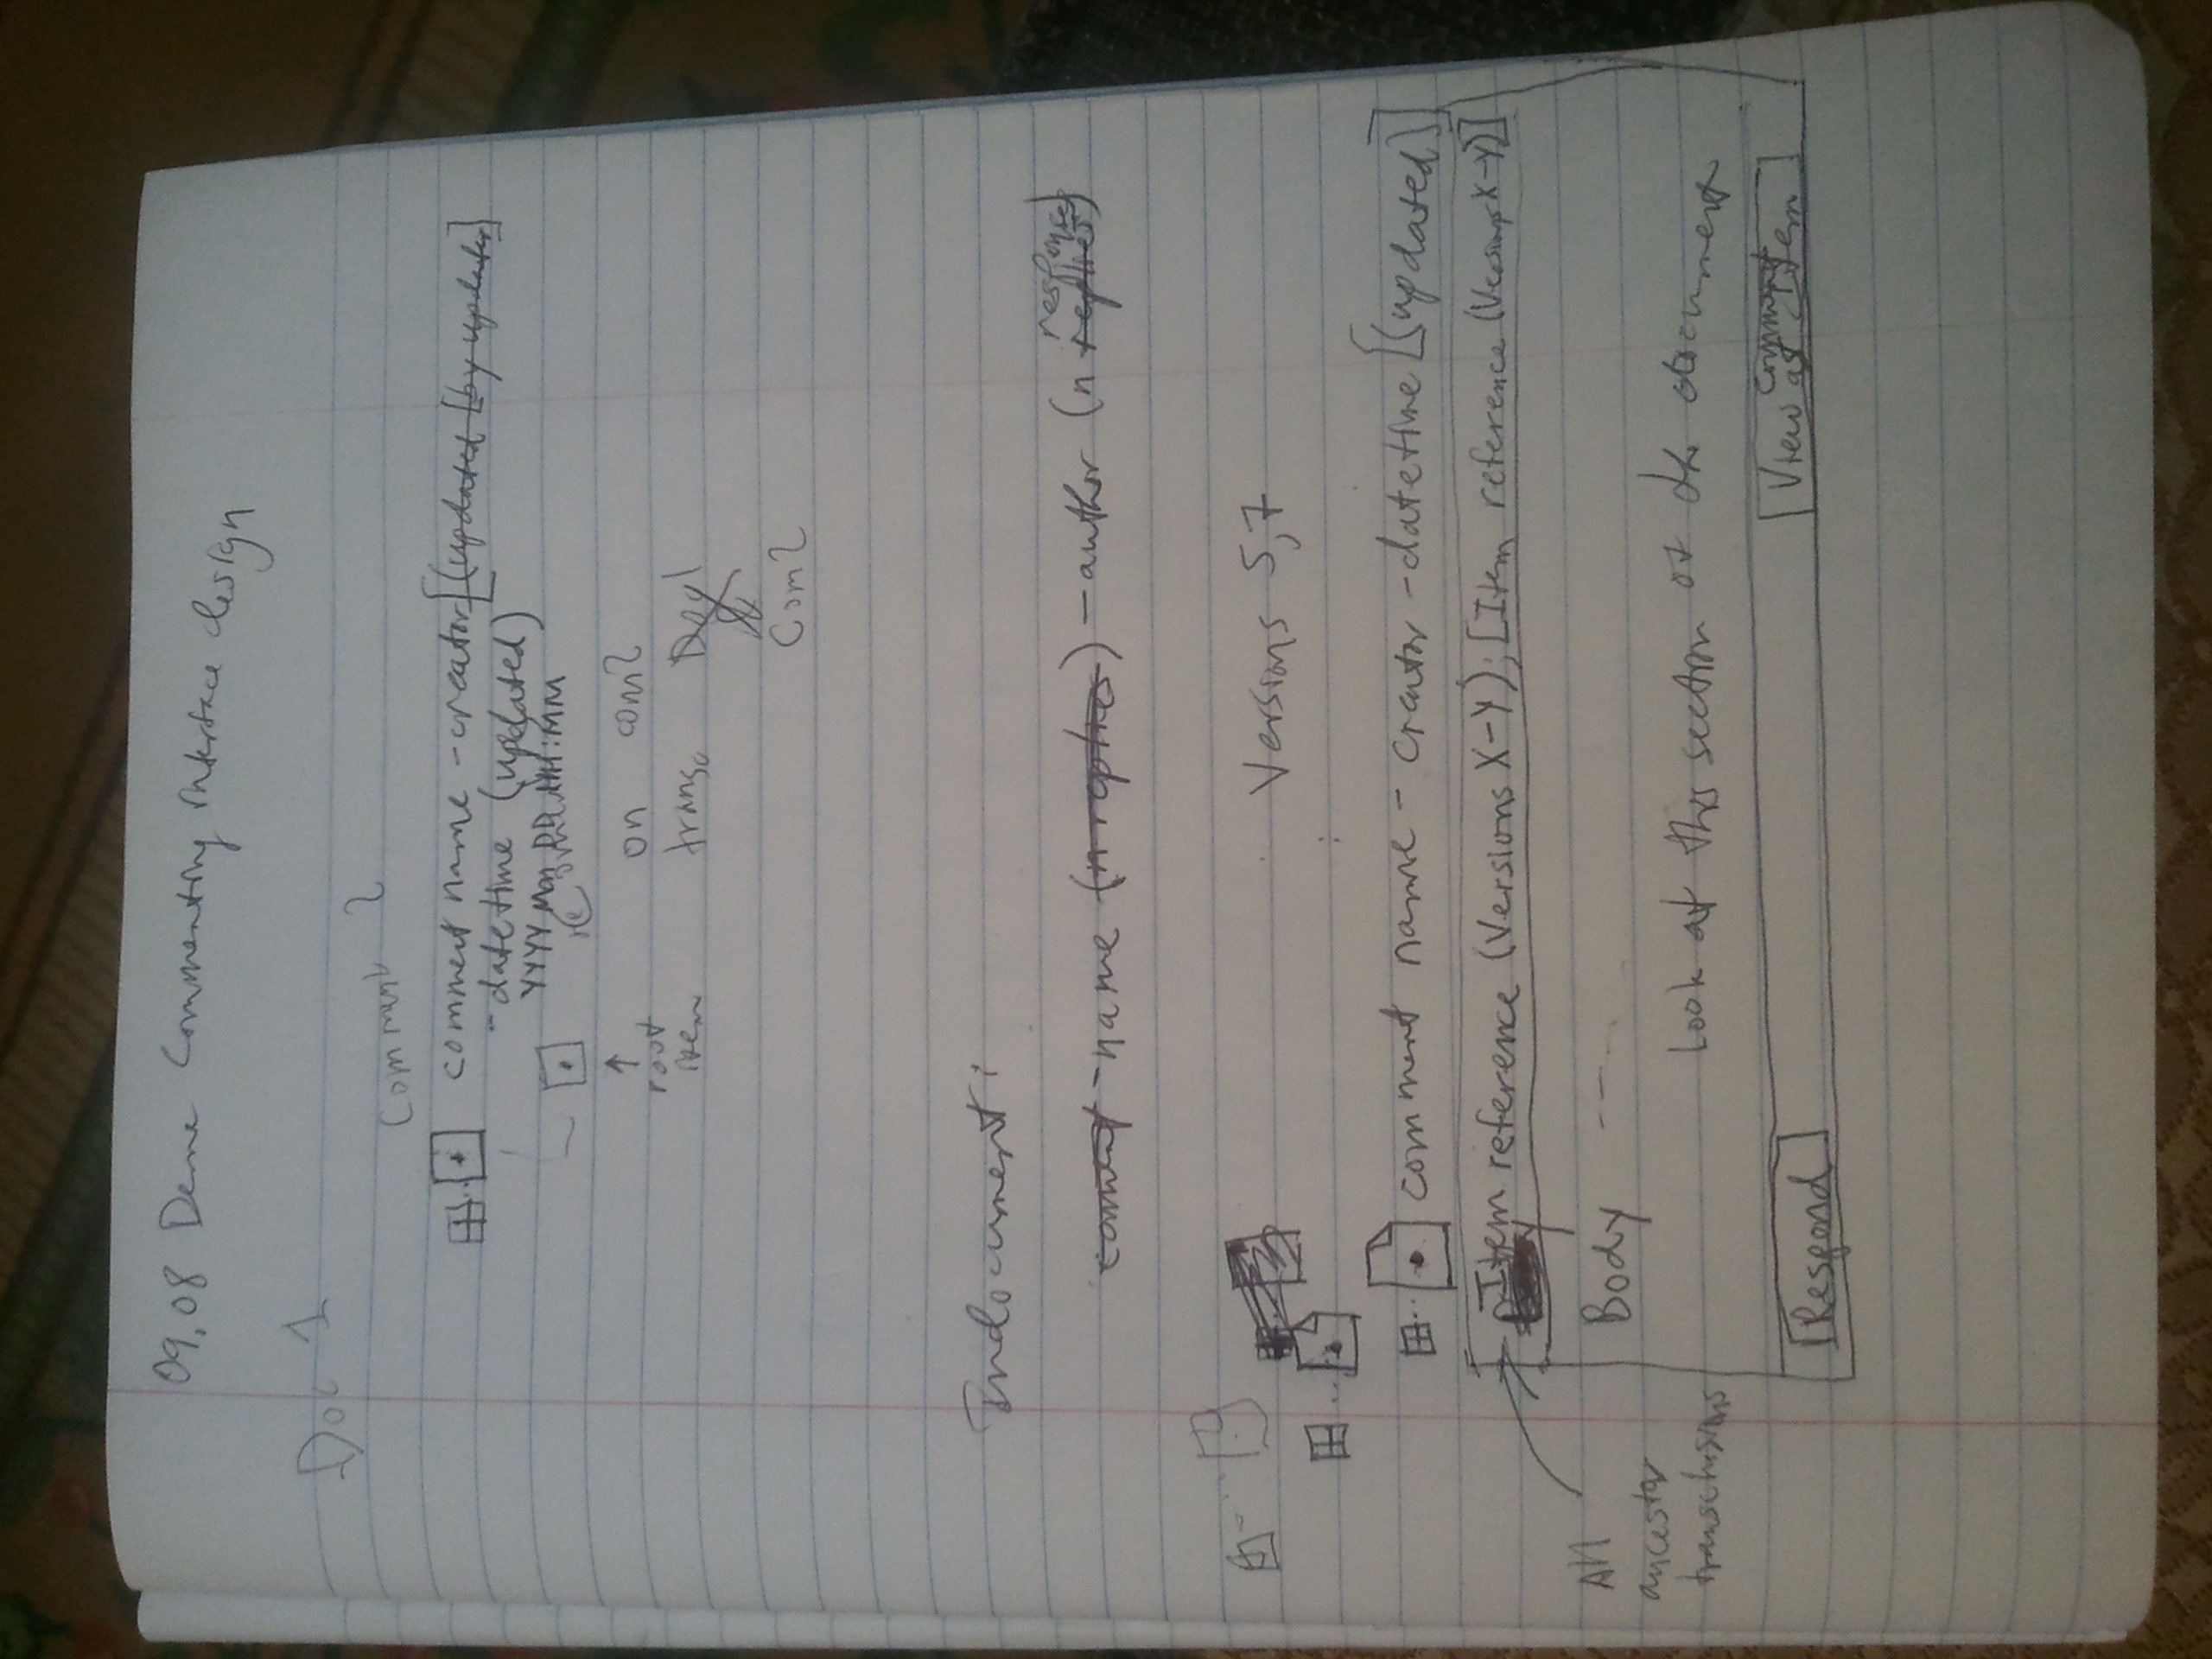 09.08 Deme Commenting interface design
Doc 1
Comment 2
comment name - creator [(updated [by updater]
- datetime (updated)
YYYY Mon DD HH:MM
on com2
↑
root
item
trans. Doc 1
Com2
In document:
comment - name (n replies) - author (n replies)
responses
Versions 5,7
comment name - creator - datetime [(updated)]
Item reference (Versions X-Y); [Item reference (Versions X-Y)]
Body - - -
Look at this section of the document
Respond
View comment
as item
All
ancestor
transclusions